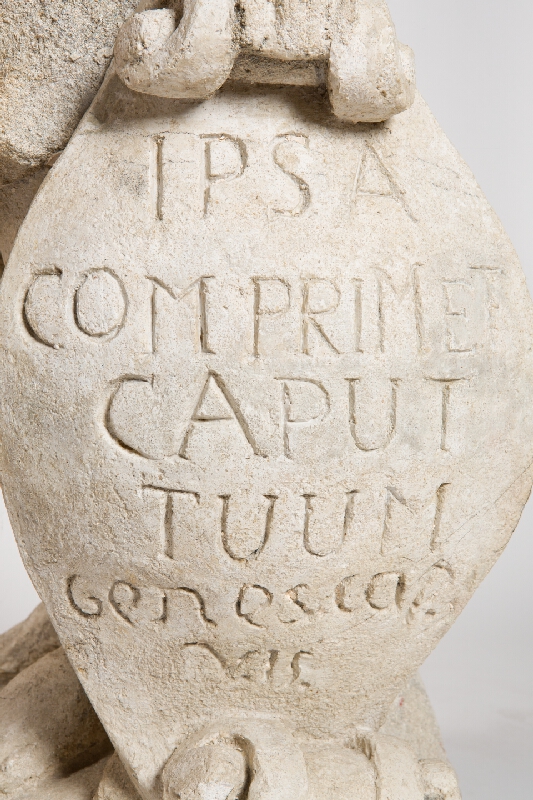 IPSA
COMPRIMET
CAPUT
TUUM
Genes ca